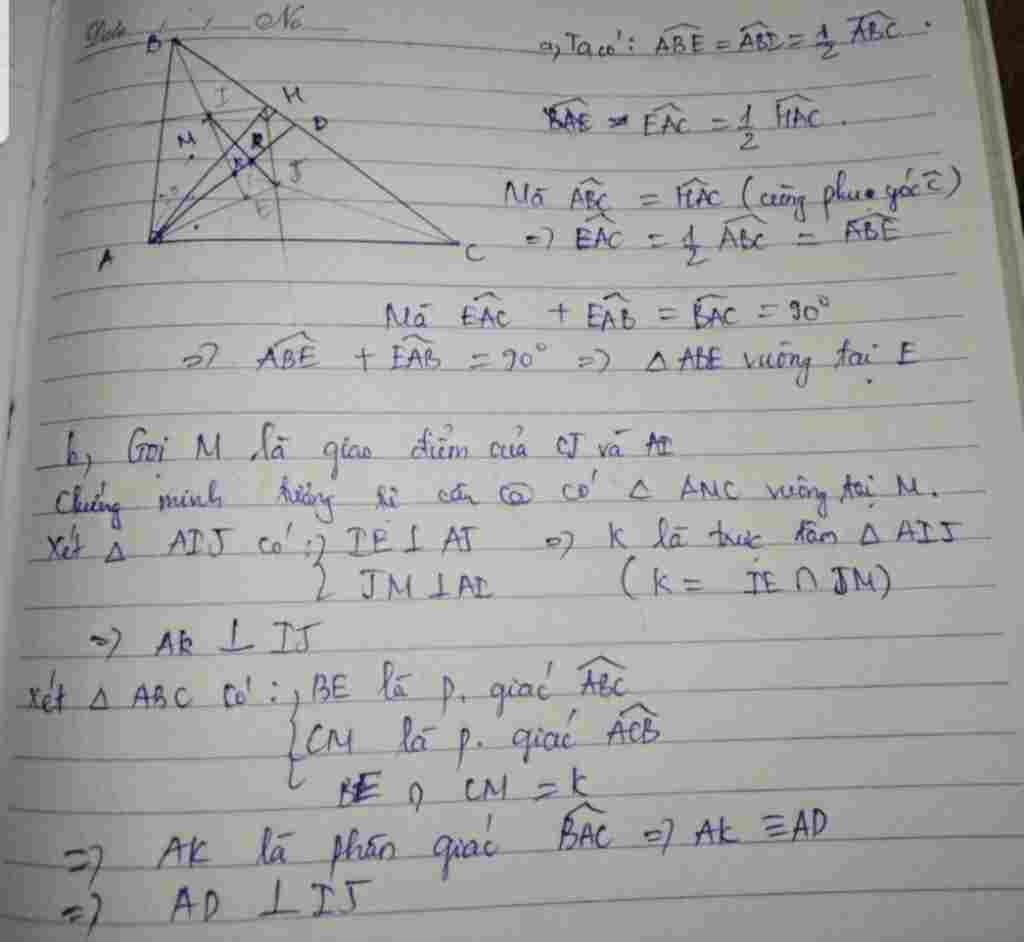 Date / / No
B
I
H
D
M
K
J
E
A
C
a, Ta có: ABE = ABI = 1/2 ABC.
BAE = EAC = 1/2 HAC.
Mà ABC = HAC (cùng phụ góc C)
=> EAC = 1/2 ABC = ABE
Mà EAC + EAB = BAC = 90°
=> ABE + EAB = 90° => △ ABE vuông tại E
b, Gọi M là giao điểm của CJ và AI
Chứng minh tương tự câu a có △ AMC vuông tại M.
Xét △ AIJ có: { IE ⊥ AJ => K là trực tâm △ AIJ
{ JM ⊥ AI (K = IE ∩ JM)
=> AK ⊥ IJ
Xét △ ABC có: { BE là p. giác ABC
{ CM là p. giác ACB
BE ∩ CM = K
=> AK là phân giác BAC => AK ≡ AD
=> AD ⊥ IJ